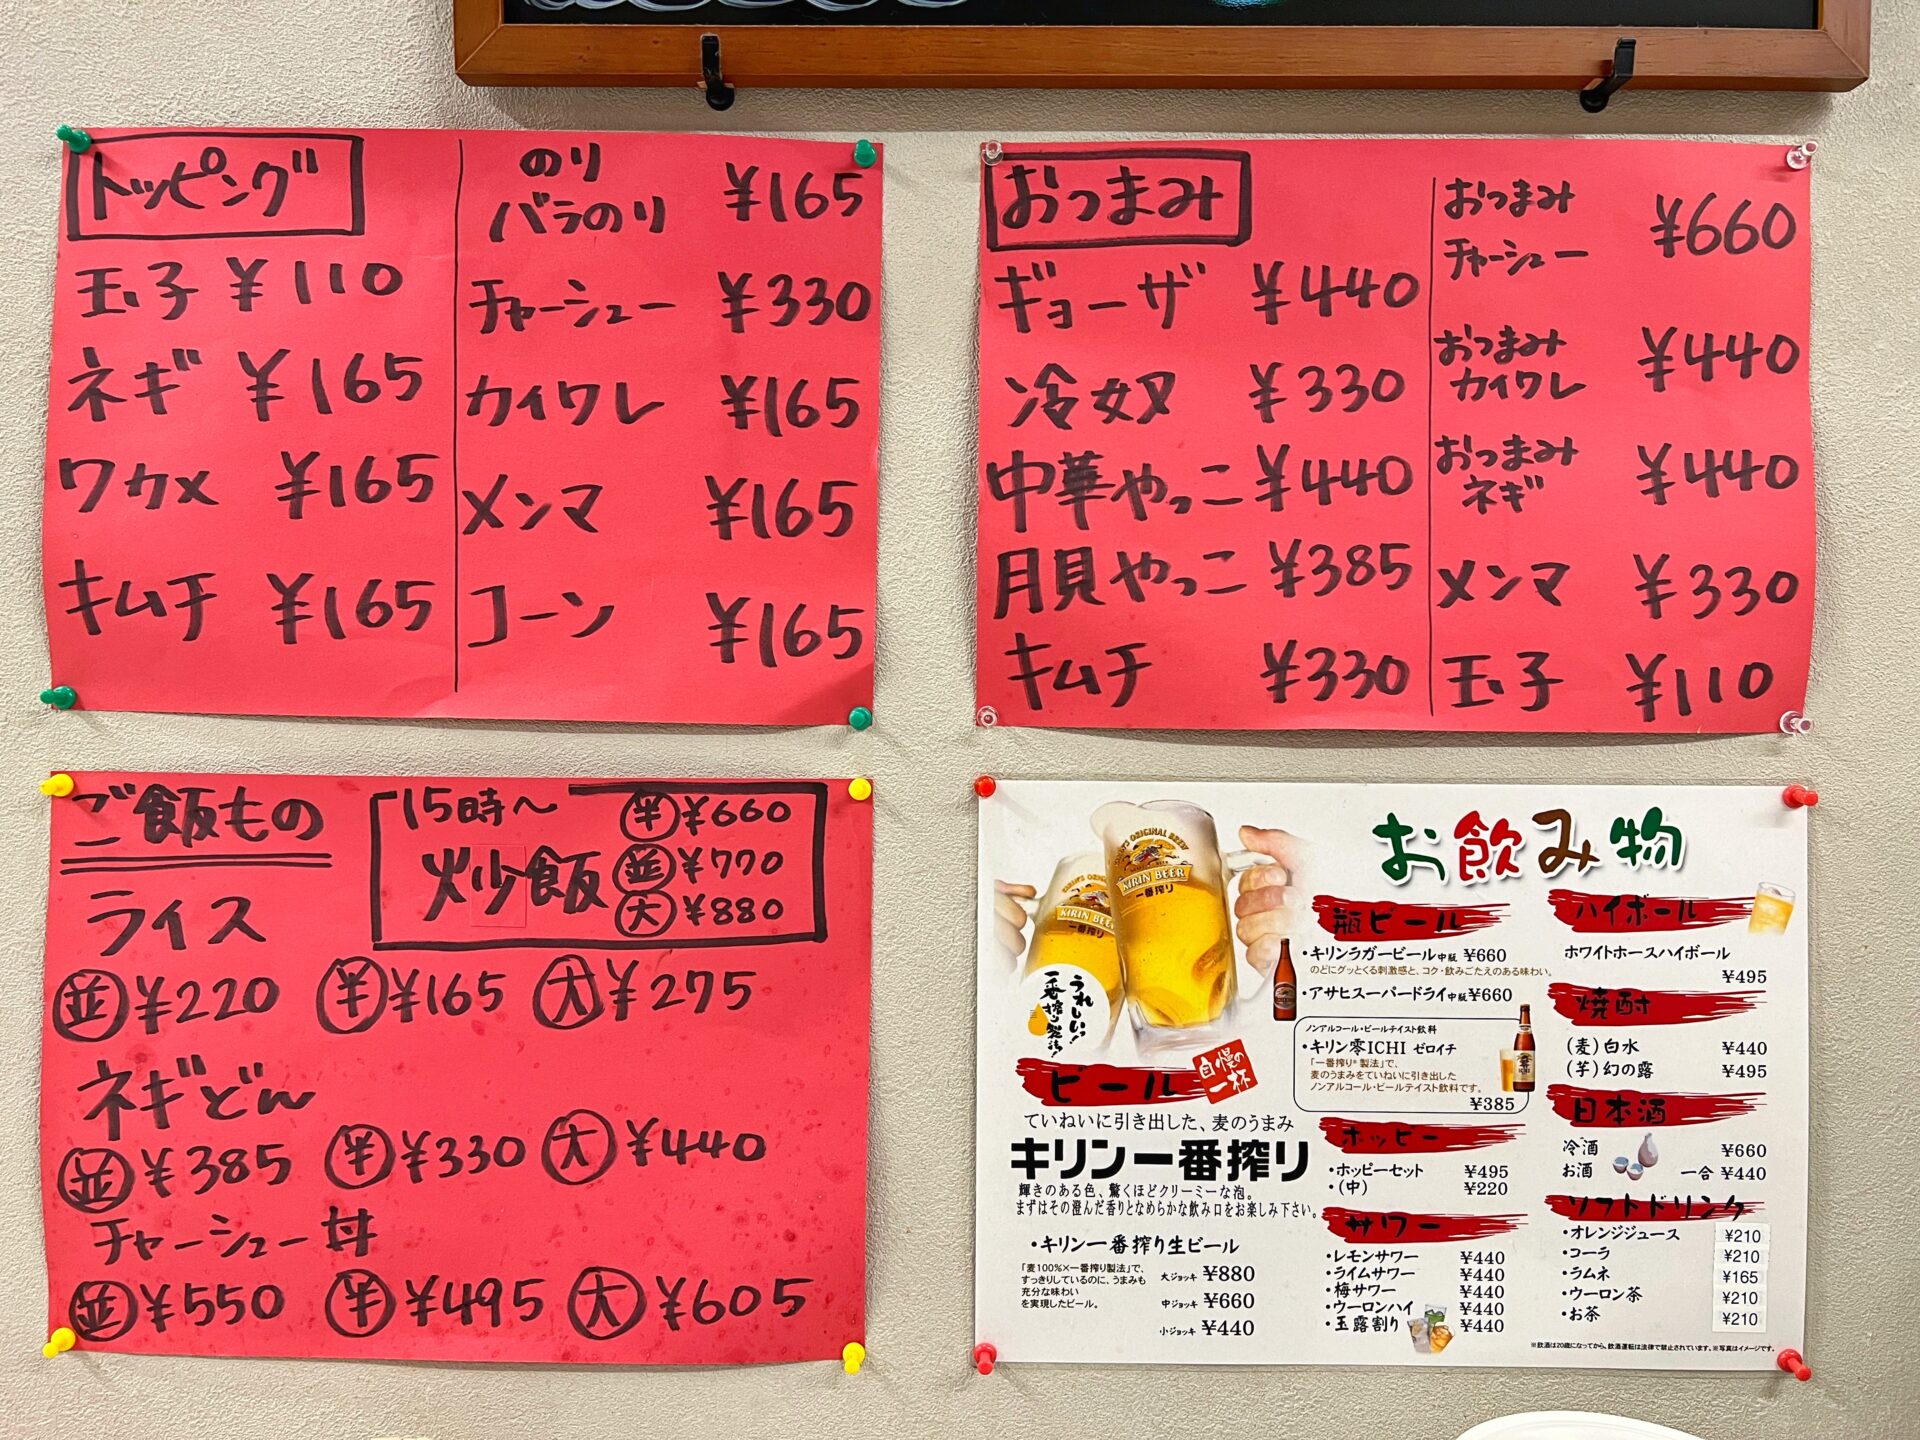 トッピング
玉子 ¥110
ネギ ¥165
ワカメ ¥165
キムチ ¥165
のり
バラのり ¥165
チャーシュー ¥330
カイワレ ¥165
メンマ ¥165
コーン ¥165
おつまみ
ギョーザ ¥440
冷奴 ¥330
中華やっこ ¥440
月見やっこ ¥385
キムチ ¥330
おつまみ
チャーシュー ¥660
おつまみ
カイワレ ¥440
おつまみ
ネギ ¥440
メンマ ¥330
玉子 ¥110
ご飯もの
15時〜
炒飯
半 ¥660
並 ¥770
大 ¥880
ライス
並 ¥220 半 ¥165 大 ¥275
ネギどん
並 ¥385 半 ¥330 大 ¥440
チャーシュー丼
並 ¥550 半 ¥495 大 ¥605
お飲み物
KIRIN BEER
一番搾り
KIRIN BEER
一番搾り
うれしいっ!
一番搾り製法!
自慢の
一杯
ビール
ていねいに引き出した、麦のうまみ
キリン一番搾り
輝きのある色、驚くほどクリーミーな泡。
まずはその澄んだ香りとなめらかな飲み口をお楽しみ下さい。
・キリン一番搾り生ビール
「麦100%×一番搾り製法」で、
すっきりしているのに、うまみも
充分な味わい
を実現したビール。
大ジョッキ ¥880
中ジョッキ ¥660
小ジョッキ ¥440
瓶ビール
・キリンラガービール中瓶 ¥660
のどにグッとくる刺激感と、コク・飲みごたえのある味わい。
・アサヒスーパードライ中瓶 ¥660
ノンアルコール・ビールテイスト飲料
・キリン零ICHI ゼロイチ
「一番搾り®製法」で、
麦のうまみをていねいに引き出した
ノンアルコール・ビールテイスト飲料です。
¥385
ホッピー
・ホッピーセット ¥495
・(中) ¥220
サワー
・レモンサワー ¥440
・ライムサワー ¥440
・梅サワー ¥440
・ウーロンハイ ¥440
・玉露割り ¥440
ハイボール
ホワイトホースハイボール
¥495
焼酎
(麦)白水 ¥440
(芋)幻の露 ¥495
日本酒
冷酒 ¥660
お酒 一合 ¥440
ソフトドリンク
・オレンジジュース ¥210
・コーラ ¥210
・ラムネ ¥165
・ウーロン茶 ¥210
・お茶 ¥210
※飲酒は20歳になってから。飲酒運転は法律で禁止されています。※写真はイメージです。